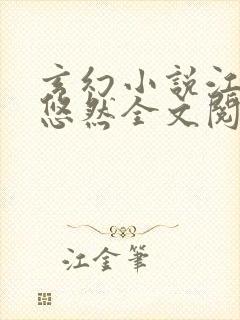 玄幻小说江
悠然全文阅
江金笔